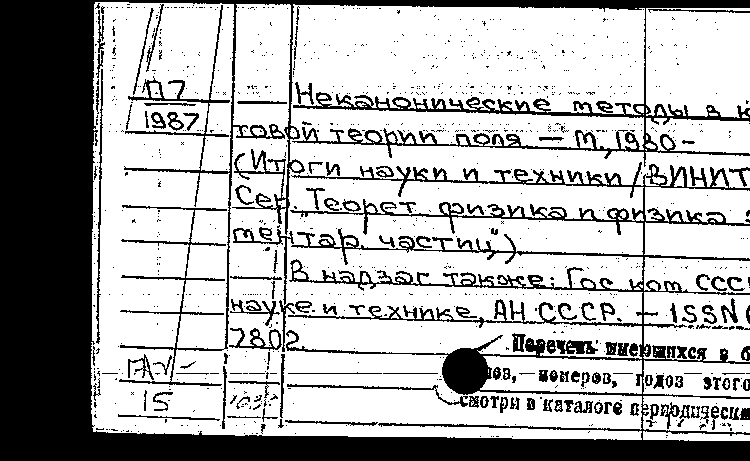 П7
1987
Неканонические методы в к
товой теории поля — М., 1980 -
(Итоги науки и техники / ВИНИТ
Сер. "Теорет. физика и физика э
ментар. частиц").
В надзаг также: Гос ком. СССР
науке и технике, АН СССР. — ISSN
7802.
Перечень имеющихся в б
ов, номеров, годов этого
смотри в каталоге периодически
15